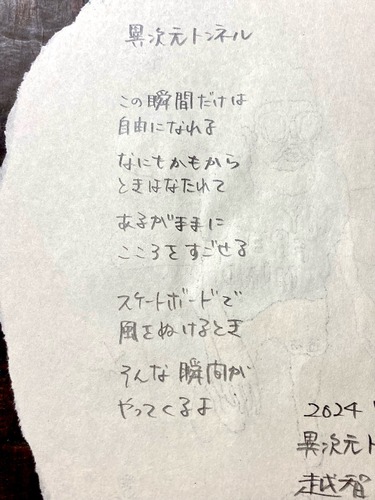 異次元トンネル
この瞬間だけは
自由になれる
なにもかもから
ときはなたれて
あるがままに
こころをすごせる
スケートボードで
風をぬけるとき
そんな瞬間が
やってくるよ
2024
異次元ト
越智